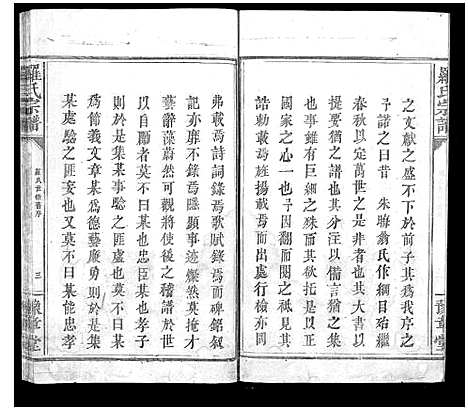 羅氏宗譜
之文獻之盛不下於前子其爲我序之
予諾之曰昔 朱晦翁氏作綱目始繼
春秋以定萬世之是非也其大書以
提要猶之譜以世系其分註以備言
也事雖有巨細之殊而其欲托是以備猶之集
國家之心一也予因翻而閱之祗見其
誥勅載焉旌揚載焉而出處行檢亦罔
豫章堂
弗載焉詩詞錄焉歌賦錄焉碑銘叙
記亦靡不錄焉隱顯事迹燦然莫掩才
藝辭藻蔚然可將使後之稽譜於世
以自顯者莫不曰某也忠臣某也孝子
也於是集某事驗之匪虛也莫不曰某
爲節義文章某爲德藝廉勇也於是集
某處驗之匪妄也又莫不曰某能忠孝
羅氏宗譜
羅氏世修舊序
三
豫章堂